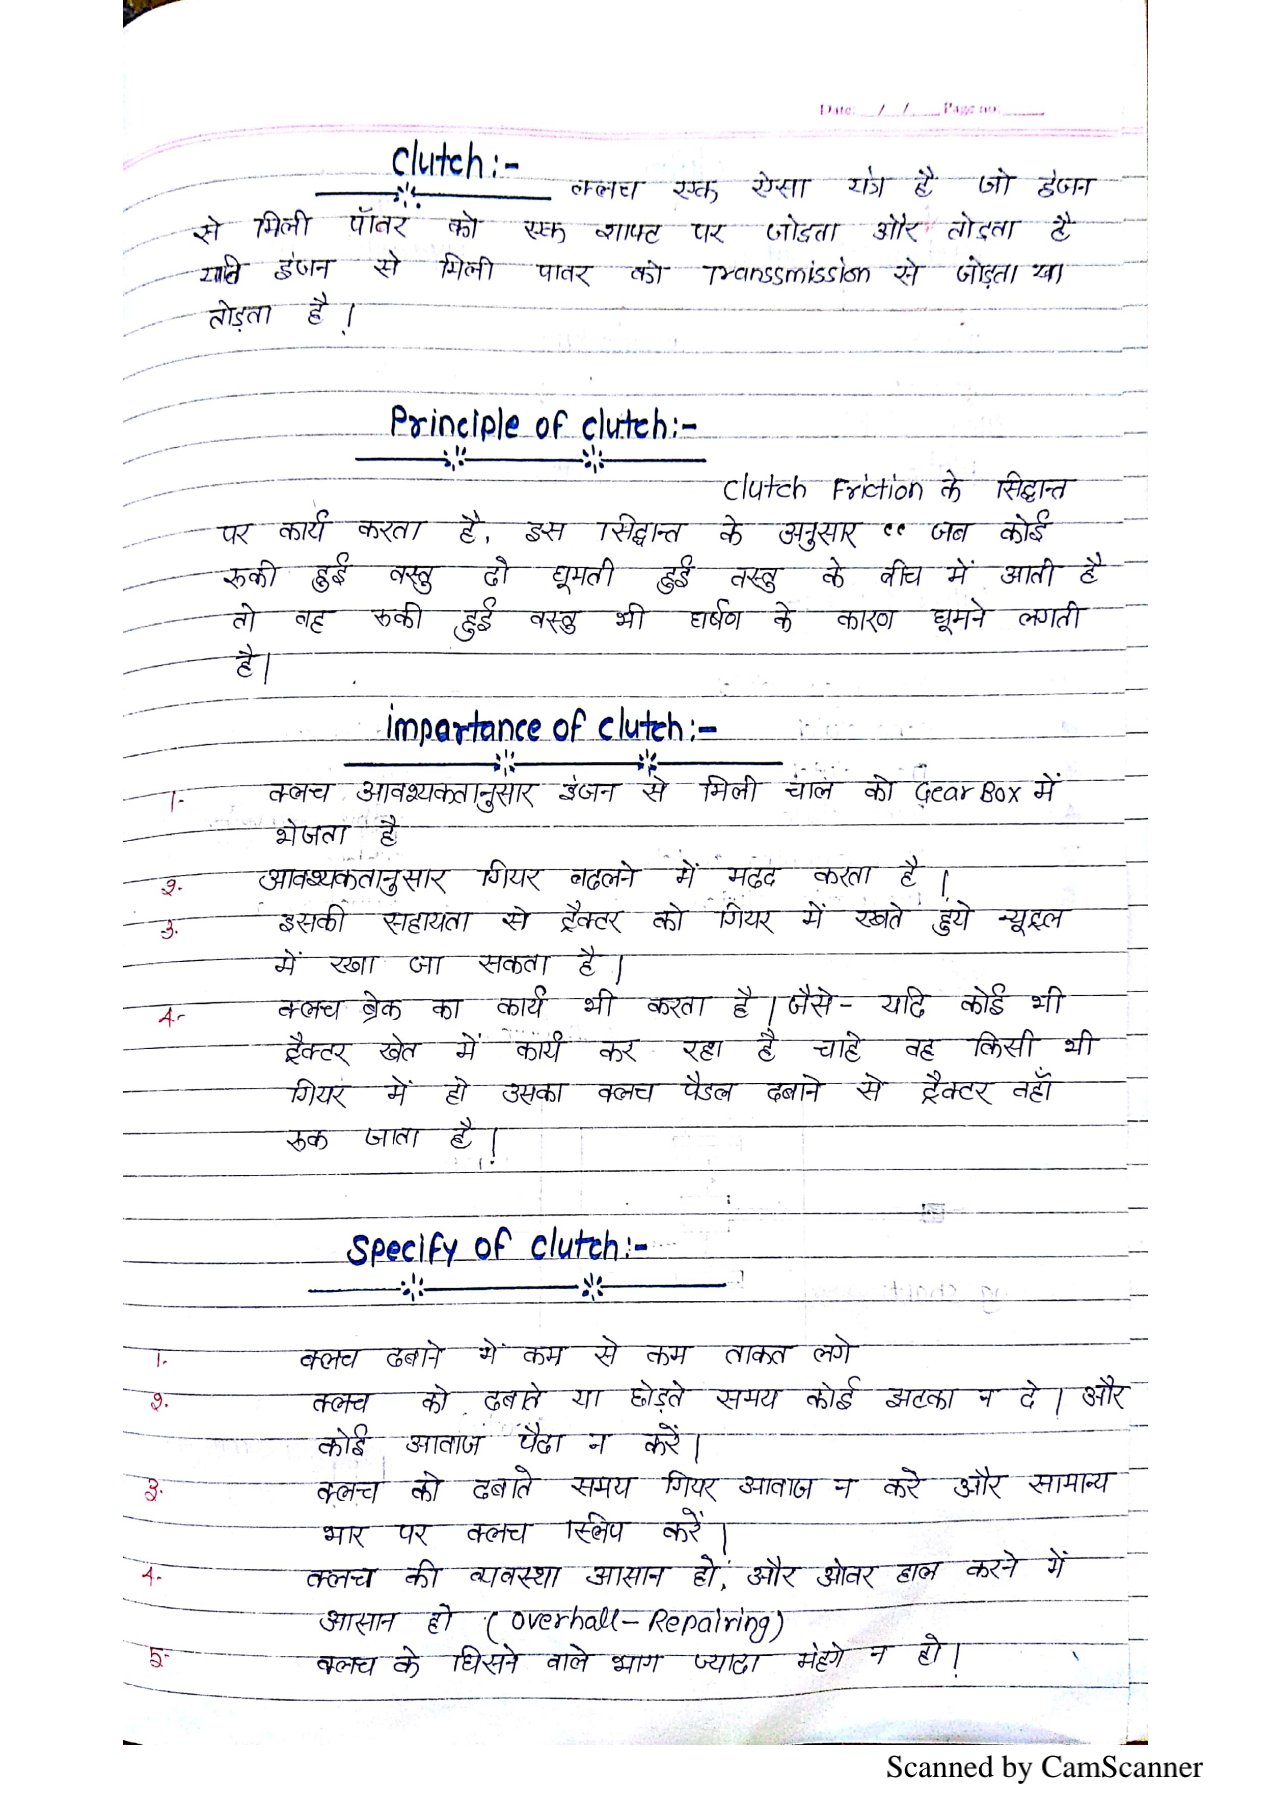 Date: __/__/____ Page no:______
Clutch:-
क्लच एक ऐसा यंत्र है जो इंजन
से मिली पॉवर को एक शाफ्ट पर जोडता और तोडता है
यानि इंजन से मिली पावर को Transsmission से जोड़ता या
तोड़ता है।
Principle of clutch:-
Clutch Friction के सिद्धान्त
पर कार्य करता है, इस सिद्धान्त के अनुसार "जब कोई
रूकी हुई वस्तु दो घूमती हुई वस्तु के बीच में आती है
तो वह रूकी हुई वस्तु भी घर्षण के कारण घूमने लगती
है।
impartance of clutch:-
1- क्लच आवश्यकतानुसार इंजन से मिली चाल को Gear Box में
भेजता है
2- आवश्यकतानुसार गियर बदलने में मदद करता है।
3- इसकी सहायता से ट्रैक्टर को गियर में रखते हुये न्यूट्रल
में रखा जा सकता है।
4- क्लच ब्रेक का कार्य भी करता है। जैसे- यदि कोई भी
ट्रैक्टर खेत में कार्य कर रहा है चाहे वह किसी भी
गियर में हो उसका क्लच पैडल दबाने से ट्रैक्टर वहाँ
रूक जाता है।
Specify of clutch:-
1- क्लच दबाने में कम से कम ताकत लगे
2- क्लच को दबाते या छोड़ते समय कोई झटका न दे। और
कोई आवाज पैदा न करें।
3- क्लच को दबाते समय गियर आवाज न करे और सामान्य
भार पर क्लच स्लिप करें।
4- क्लच की व्यवस्था आसान हो, और ओवर हाल करने में
आसान हो (overhall-Repairing)
5- क्लच के घिसने वाले भाग ज्यादा मंहगे न हो।
Scanned by CamScanner